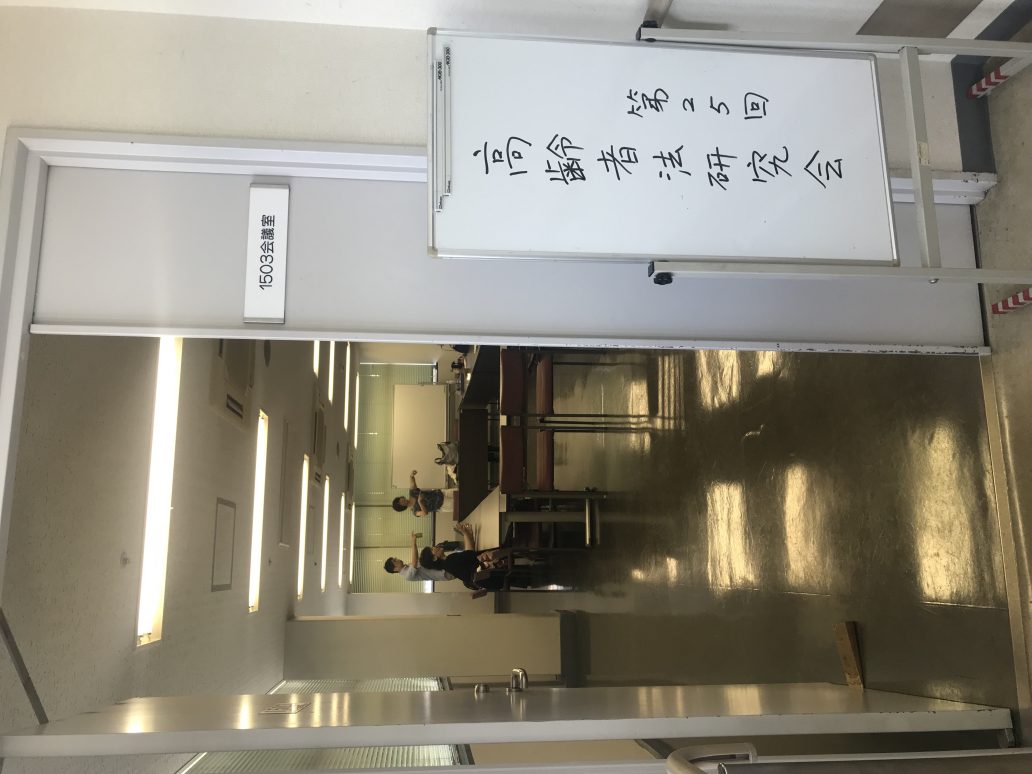 第25回
高齢者法研究会
1503会議室